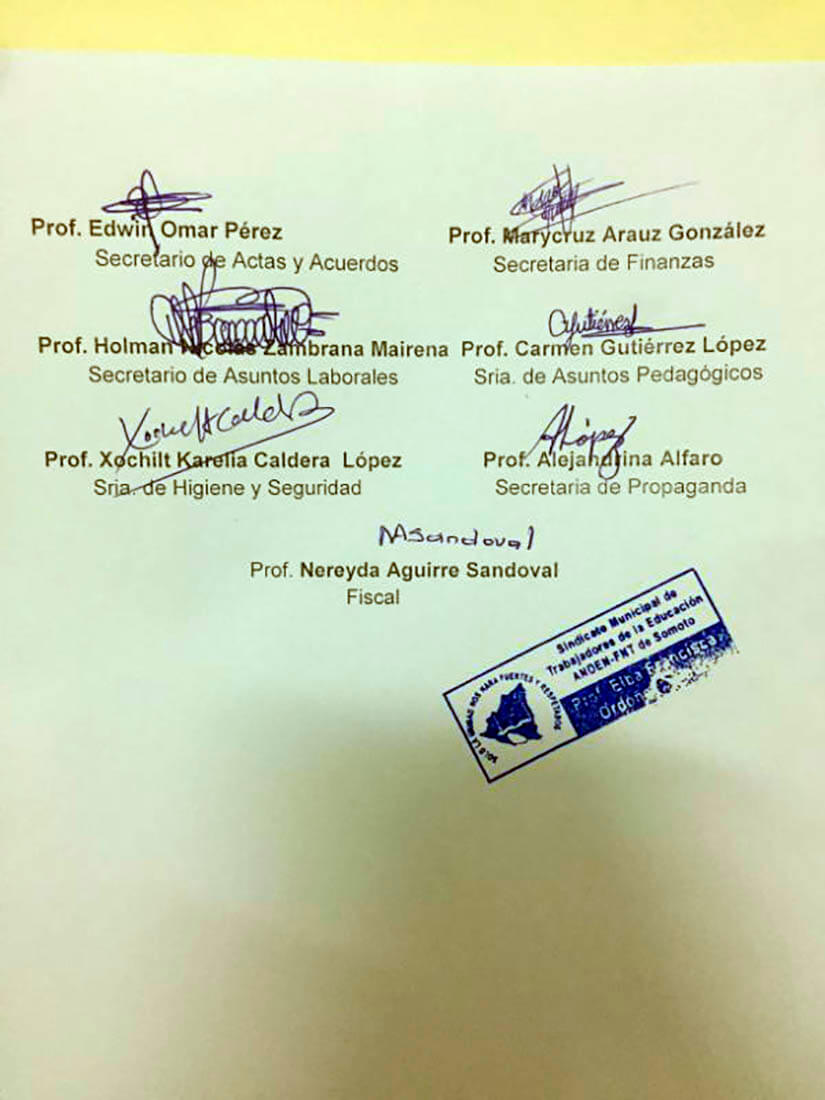 Prof. Edwin Omar Pérez
Secretario de Actas y Acuerdos
Prof. Marycruz Arauz González
Secretaria de Finanzas
Prof. Holman Nicolás Zambrana Mairena
Secretario de Asuntos Laborales
CGutiérrezL
Prof. Carmen Gutiérrez López
Sria. de Asuntos Pedagógicos
Xochilt Caldera
Prof. Xochilt Karelia Caldera López
Sria. de Higiene y Seguridad
ALópez
Prof. Alejandrina Alfaro
Secretaria de Propaganda
NASandoval
Prof. Nereyda Aguirre Sandoval
Fiscal
Sindicato Municipal de
Trabajadores de la Educación
ANDEN-FNT de Somoto
Prof. Elba Francisca
SOLO LA UNIDAD NOS HARA FUERTES Y RESPETADOS